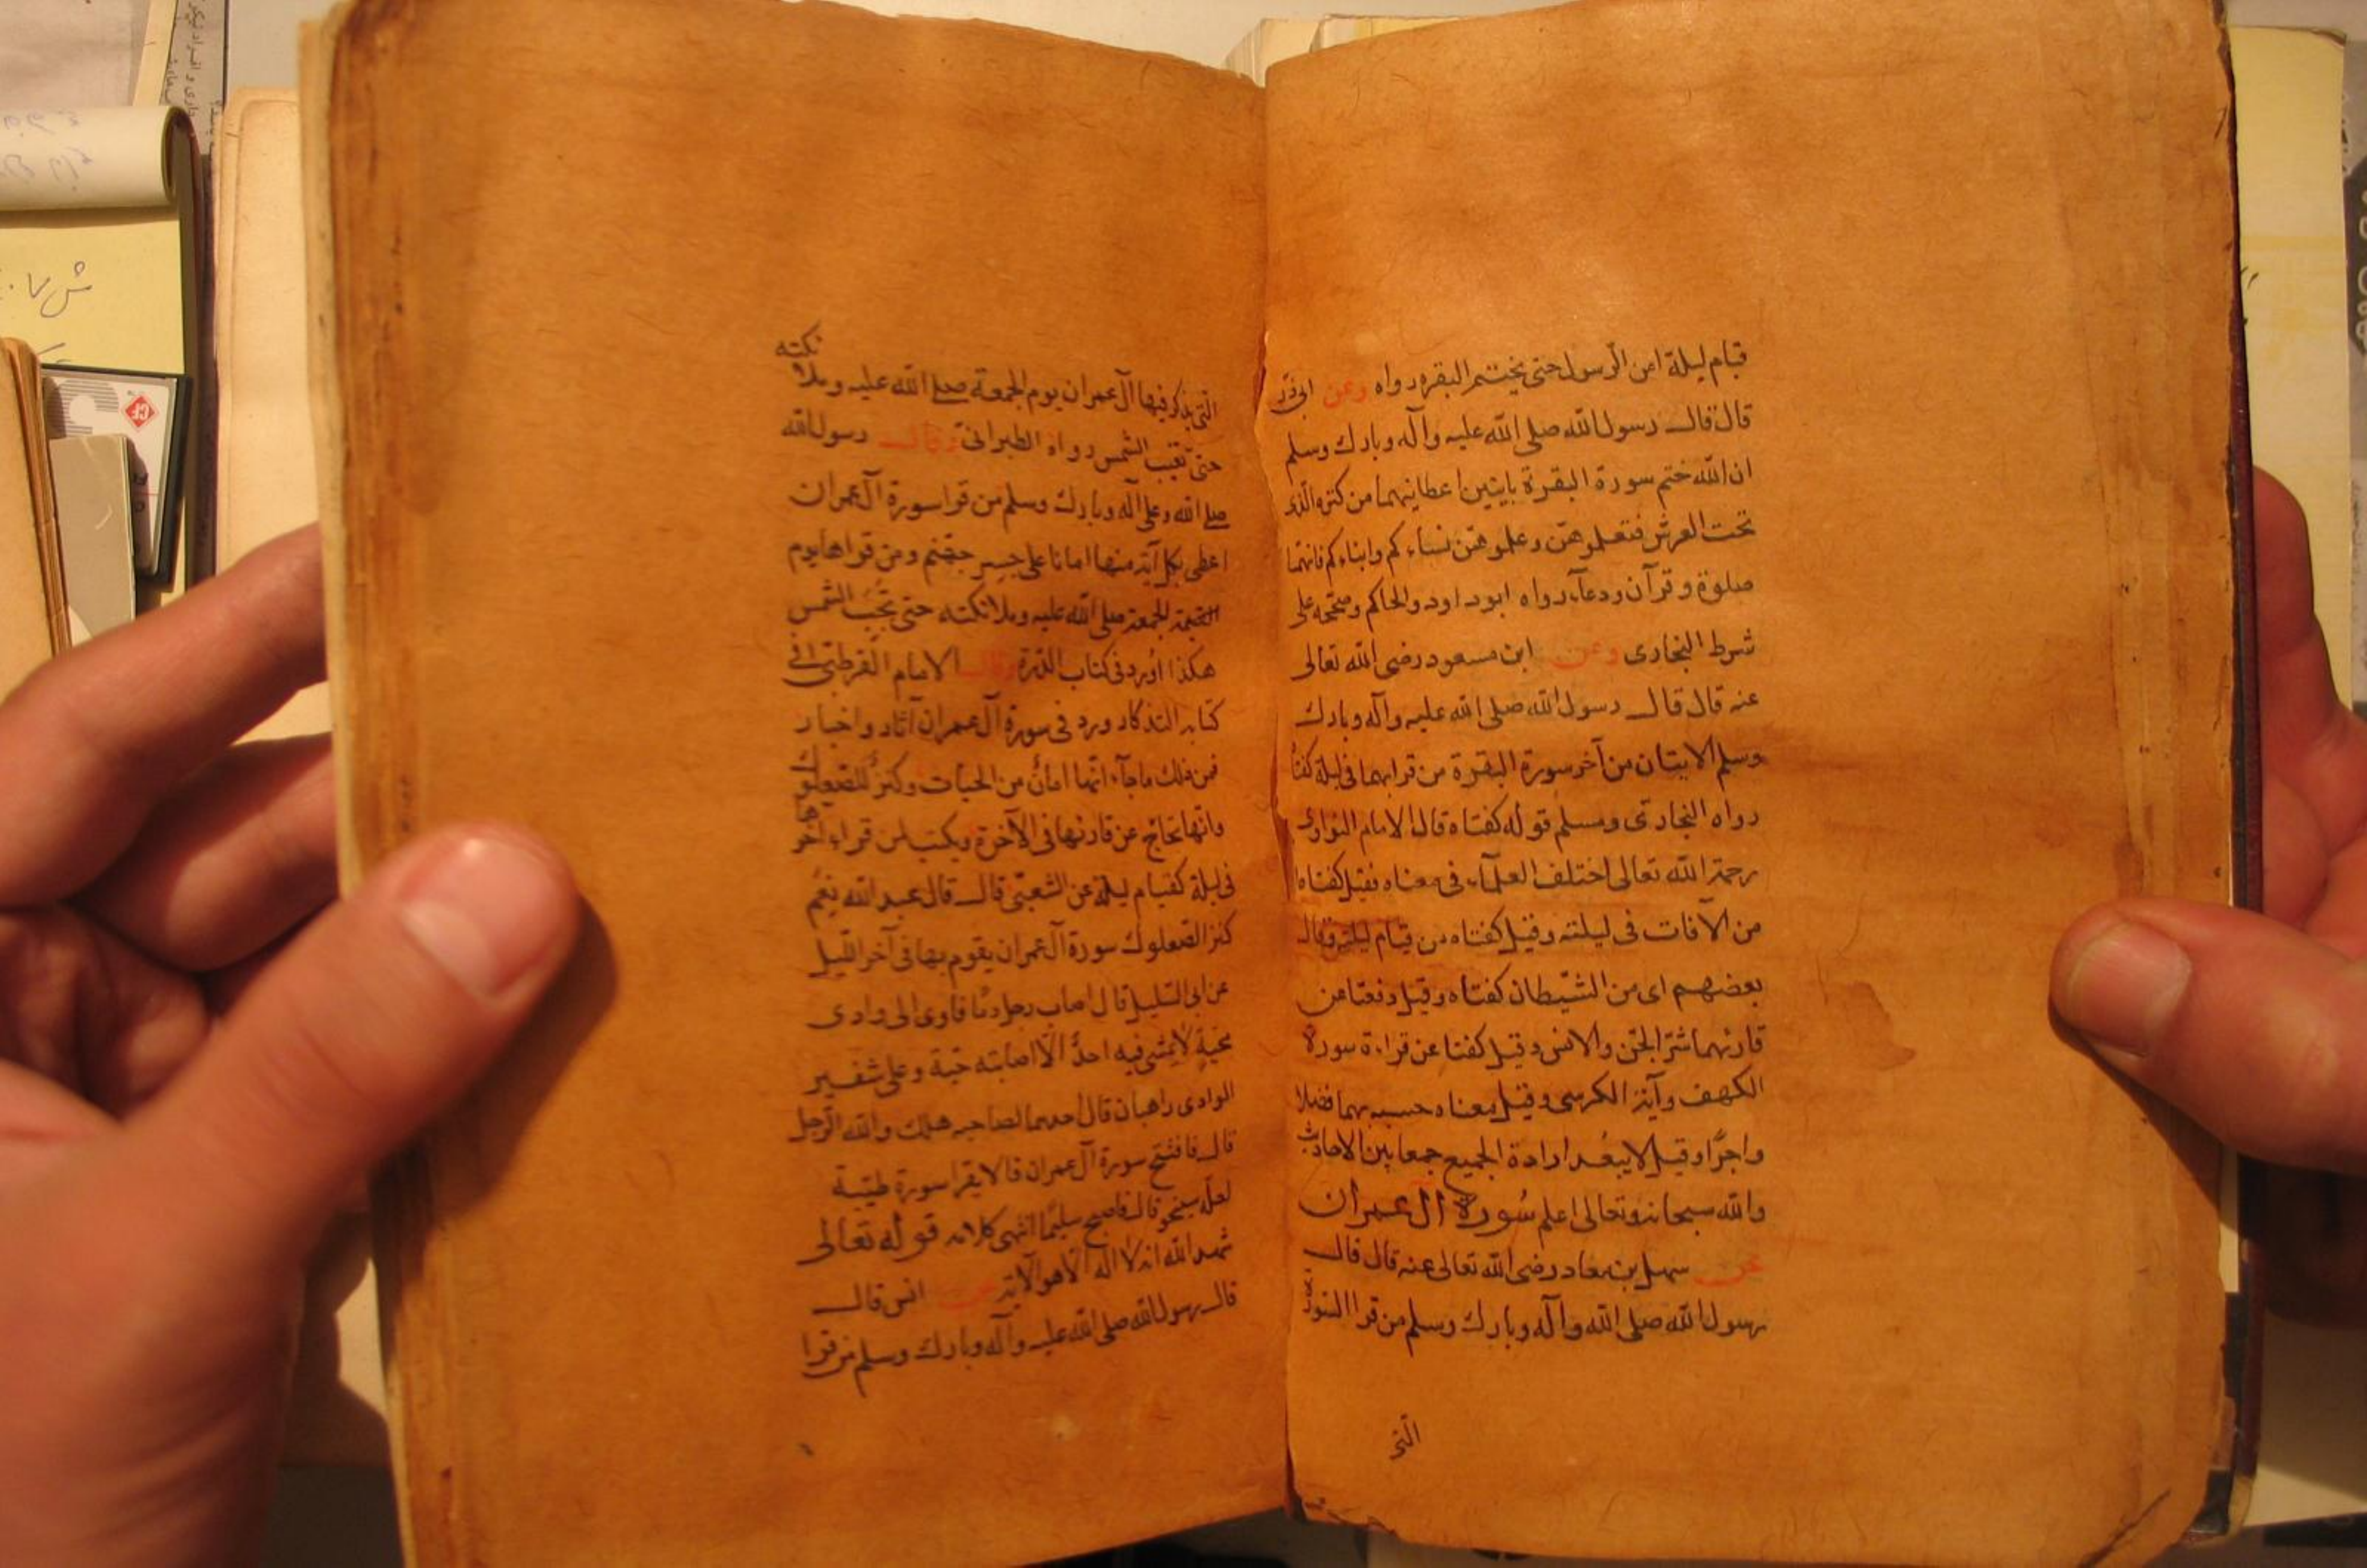 قيام ليلة امن الرسول حتى يختتم البقره رواه وعن ابى ذر
قال قال رسول الله صلى الله عليه وآله وبارك وسلم
ان الله ختم سورة البقرة بايتين اعطانيهما من كنزه الذى
تحت العرش فتعلموهن وعلموهن نساءكم وابناءكم فانهما
صلوة وقرآن ودعاء رواه ابوداود والحاكم وصححه على
شرط البخارى وعن ابن مسعود رضى الله تعالى
عنه قال قال رسول الله صلى الله عليه وآله وبارك
وسلم الايتان من آخر سورة البقرة من قرابهما فى ليلة كفتا
رواه البخارى ومسلم قوله كفتاه قال الامام النواوى
رحمة الله تعالى اختلف العلماء فى معناه فقيل كفتاه
من الآفات فى ليلته وقيل كفتاه من قيام ليلته وقال
بعضهم اى من الشيطان كفتاه وقيل دفعتا عن
قارئهما شر الجن والانس وقيل كفتا عن قراءة سورة
الكهف وآية الكرسى وقيل معناه حسبه بهما فضلا
واجرا وقيل لا يبعد ارادة الجميع جمعا بين الاحاديث
والله سبحانه وتعالى اعلم سورة آل عمران
عن سهل بن معاد رضى الله تعالى عنه قال قال
رسول الله صلى الله وآله وبارك وسلم من قرا السورة
التى
نكته
التى يذكر فيها آل عمران يوم الجمعة صلى الله عليه وملا
حتى تغيب الشمس رواه الطبرانى وقال رسول الله
صلى الله وعلى آله وبارك وسلم من قرا سورة آل عمران
اعطى بكل آية منها امانا على جسر جهنم ومن قراها يوم
الجمعة صلى الله عليه وملائكته حتى تجب الشمس
هكذا اورد فى كتاب الدرة وقال الامام القرطبى فى
كتابه التذكار ورد فى سورة آل عمران آثار واخبار
فمن ذلك ما جاء انها امان من الحيات وكنز للصعلوك
وانها تحاج عن قارئها فى الآخرة ويكتب لمن قراء آخرها
فى ليلة كقيام ليلة عن الشعبى قال قال عبد الله نعم
كنز الصعلوك سورة آل عمران يقوم بها فى آخر الليل
عن ابى السليل قال اصاب رجل دما فاوى الى وادى
مجنة لا يمشى فيه احد الا اصابته حية وعلى شفير
الوادى راهبان قال احدهما لصاحبه هلك والله الرجل
قال فافتتح سورة آل عمران قالا يقرا سورة طيبة
لعله سينجو قال فاصبح سليما انتهى كلامه قوله تعالى
شهد الله انه لا اله الا هو الآية عن انس قال
قال رسول الله صلى الله عليه وآله وبارك وسلم من قرا